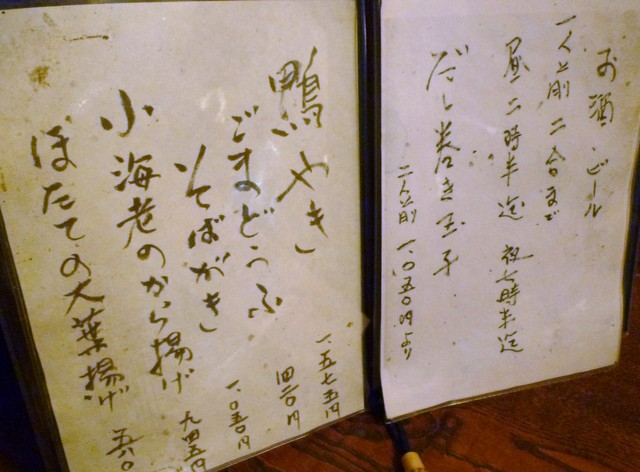 お酒、ビール
一人前 二合まで
昼 二時半迄 夜七時半迄
だし巻き玉子
二人前 一、〇五〇円より
鴨やき 一五七五円
ごまどうふ 四二〇円
そばがき 一、〇五〇円
小海老のから揚げ 九四五円
ほたての大葉揚げ 五六〇